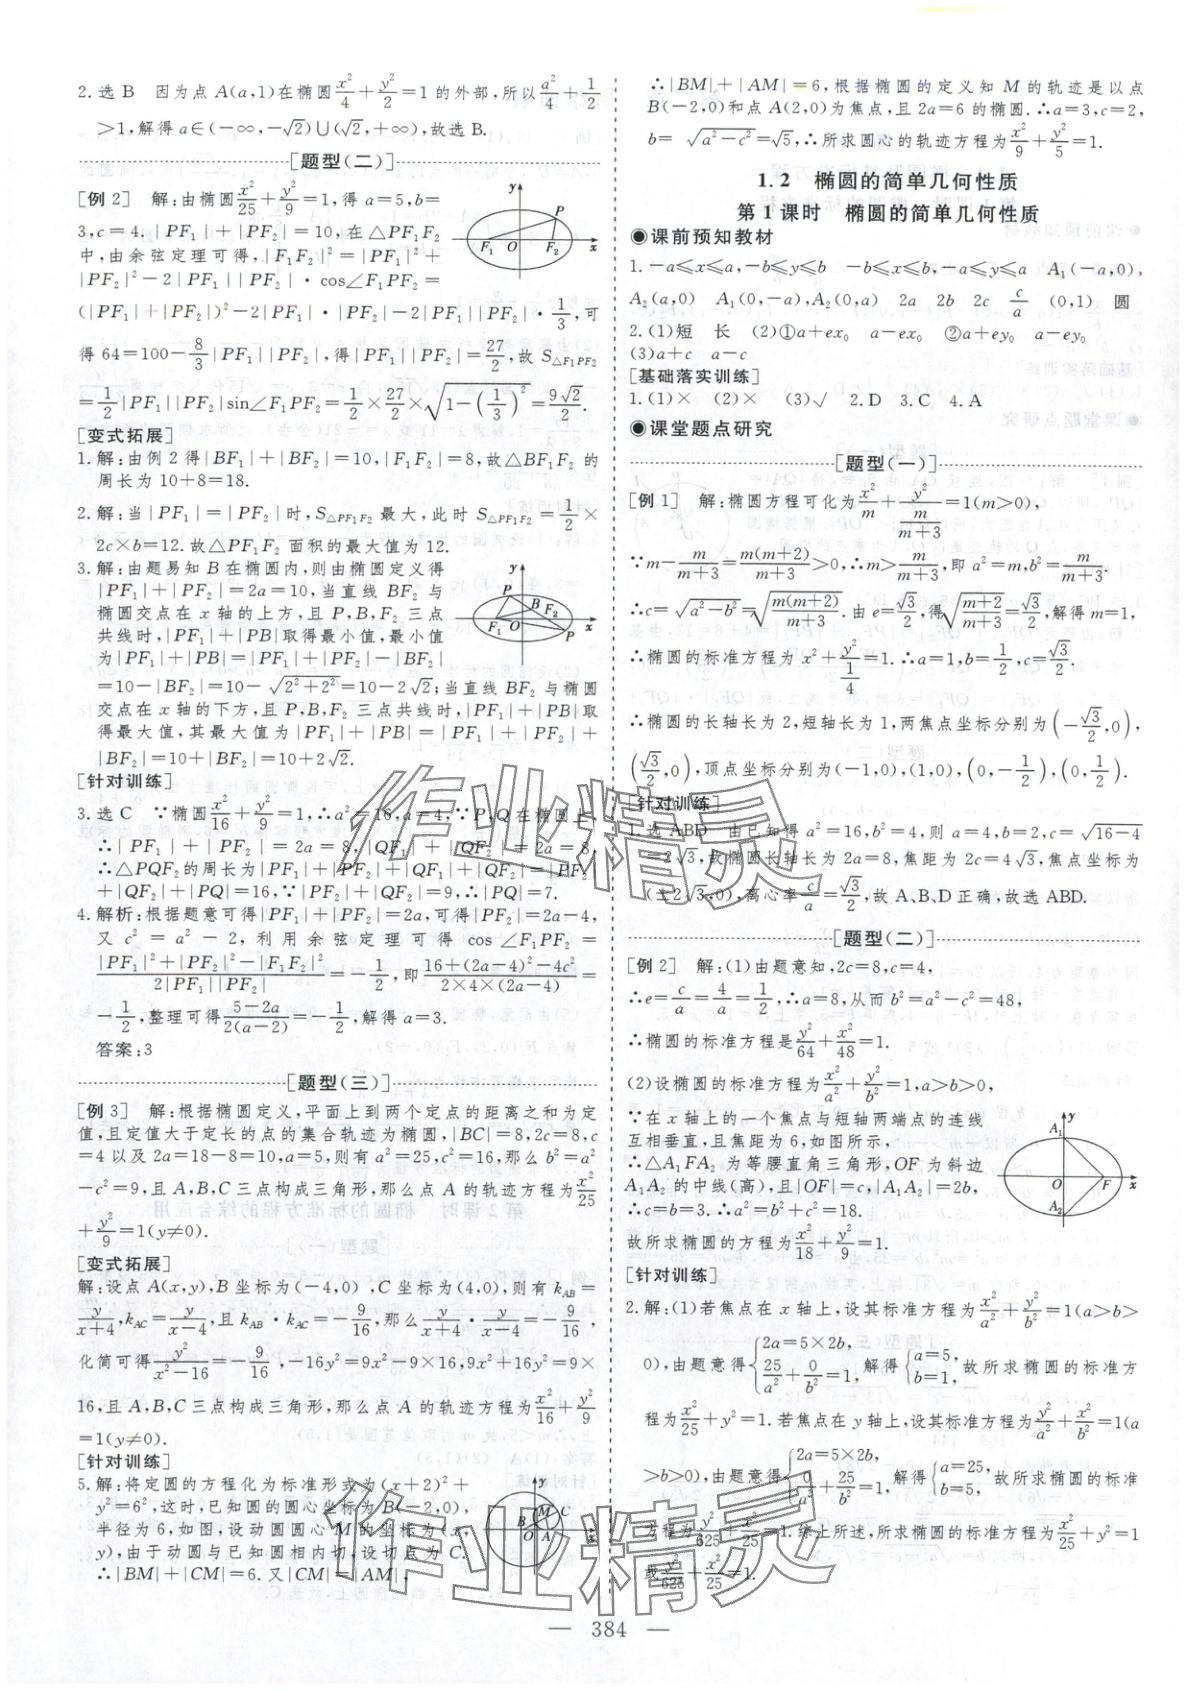 2.选B 因为点A(a,1)在椭圆x²/4+y²/2=1的外部,所以a²/4+1/2
>1,解得a∈(-∞,-√2)∪(√2,+∞),故选B.
[题型(二)]
[例2] 解:由椭圆x²/25+y²/9=1,得a=5,b=
3,c=4.|PF₁|+|PF₂|=10,在△PF₁F₂
中,由余弦定理可得,|F₁F₂|²=|PF₁|²+
|PF₂|²-2|PF₁||PF₂|·cos∠F₁PF₂=
(|PF₁|+|PF₂|)²-2|PF₁|·|PF₂|-2|PF₁||PF₂|·1/3,可
得64=100-8/3|PF₁||PF₂|,得|PF₁||PF₂|=27/2,故S△F₁PF₂
=1/2|PF₁||PF₂|sin∠F₁PF₂=1/2×27/2×√(1-(1/3)²)=9√2/2.
[变式拓展]
1.解:由例2得|BF₁|+|BF₂|=10,|F₁F₂|=8,故△BF₁F₂的
周长为10+8=18.
2.解:当|PF₁|=|PF₂|时,S△PF₁F₂最大,此时S△PF₁F₂=1/2×
2c×b=12.故△PF₁F₂面积的最大值为12.
3.解:由题易知B在椭圆内,则由椭圆定义得
|PF₁|+|PF₂|=2a=10,当直线BF₂与
椭圆交点在x轴的上方,且P,B,F₂三点
共线时,|PF₁|+|PB|取得最小值,最小值
为|PF₁|+|PB|=|PF₁|+|PF₂|-|BF₂|
=10-|BF₂|=10-√(2²+2²)=10-2√2;当直线BF₂与椭圆
交点在x轴的下方,且P,B,F₂三点共线时,|PF₁|+|PB|取
得最大值,其最大值为|PF₁|+|PB|=|PF₁|+|PF₂|+
|BF₂|=10+|BF₂|=10+2√2.
[针对训练]
3.选C ∵椭圆x²/16+y²/9=1,∴a²=16,a=4,∵P,Q在椭圆上,
∴|PF₁|+|PF₂|=2a=8,|QF₁|+|QF₂|=2a=8,
∴△PQF₂的周长为|PF₁|+|PF₂|+|QF₁|+|QF₂|=|PF₂|
+|QF₂|+|PQ|=16,∵|PF₂|+|QF₂|=9,∴|PQ|=7.
4.解析:根据题意可得|PF₁|+|PF₂|=2a,可得|PF₂|=2a-4,
又c²=a²-2,利用余弦定理可得cos∠F₁PF₂=
(|PF₁|²+|PF₂|²-|F₁F₂|²)/(2|PF₁||PF₂|)=-1/2,即(16+(2a-4)²-4c²)/(2×4×(2a-4))=
-1/2,整理可得(5-2a)/(2(a-2))=-1/2,解得a=3.
答案:3
[题型(三)]
[例3] 解:根据椭圆定义,平面上到两个定点的距离之和为定
值,且定值大于定长的点的集合轨迹为椭圆,|BC|=8,2c=8,c
=4以及2a=18-8=10,a=5,则有a²=25,c²=16,那么b²=a²
-c²=9,且A,B,C三点构成三角形,那么点A的轨迹方程为x²/25
+y²/9=1(y≠0).
[变式拓展]
解:设点A(x,y),B坐标为(-4,0),C坐标为(4,0),则有kAB=
y/(x+4),kAC=y/(x-4),且kAB·kAC=-9/16,那么y/(x+4)·y/(x-4)=-9/16,
化简可得y²/(x²-16)=-9/16,-16y²=9x²-9×16,9x²+16y²=9×
16,且A,B,C三点构成三角形,那么点A的轨迹方程为x²/16+y²/9=
1(y≠0).
[针对训练]
5.解:将定圆的方程化为标准形式为(x+2)²+
y²=6²,这时,已知圆的圆心坐标为B(-2,0),
半径为6,如图,设动圆圆心M的坐标为(x,
y),由于动圆与已知圆相内切,设切点为C.
∴|BM|+|CM|=6.又|CM|=|AM|,
∴|BM|+|AM|=6,根据椭圆的定义知M的轨迹是以点
B(-2,0)和点A(2,0)为焦点,且2a=6的椭圆.∴a=3,c=2,
b=√(a²-c²)=√5,∴所求圆心的轨迹方程为x²/9+y²/5=1.
1.2 椭圆的简单几何性质
第1课时 椭圆的简单几何性质
◉课前预知教材
1.-a≤x≤a,-b≤y≤b -b≤x≤b,-a≤y≤a A₁(-a,0),
A₂(a,0) A₁(0,-a),A₂(0,a) 2a 2b 2c c/a (0,1) 圆
2.(1)短 长 (2)①a+ex₀ a-ex₀ ②a+ey₀ a-ey₀
(3)a+c a-c
[基础落实训练]
1.(1)× (2)× (3)√ 2.D 3.C 4.A
◉课堂题点研究
[题型(一)]
[例1] 解:椭圆方程可化为x²/m+y²/(m/(m+3))=1(m>0),
∵m-m/(m+3)=m(m+2)/(m+3)>0,∴m>m/(m+3),即a²=m,b²=m/(m+3),
∴c=√(a²-b²)=√(m(m+2)/(m+3)).由e=√3/2,得√((m+2)/(m+3))=√3/2,解得m=1,
∴椭圆的标准方程为x²+y²/(1/4)=1.∴a=1,b=1/2,c=√3/2.
∴椭圆的长轴长为2,短轴长为1,两焦点坐标分别为(-√3/2,0),
(√3/2,0),顶点坐标分别为(-1,0),(1,0),(0,-1/2),(0,1/2).
[针对训练]
1.选ABD 由已知得a²=16,b²=4,则a=4,b=2,c=√(16-4)
=2√3,故椭圆长轴长为2a=8,焦距为2c=4√3,焦点坐标为
(±2√3,0),离心率c/a=√3/2,故A、B、D正确,故选ABD.
[题型(二)]
[例2] 解:(1)由题意知,2c=8,c=4,
∴e=c/a=4/a=1/2,∴a=8,从而b²=a²-c²=48,
∴椭圆的标准方程是y²/64+x²/48=1.
(2)设椭圆的标准方程为x²/a²+y²/b²=1,a>b>0.
∵在x轴上的一个焦点与短轴两端点的连线
互相垂直,且焦距为6,如图所示,
∴△A₁FA₂为等腰直角三角形,OF为斜边
A₁A₂的中线(高),且|OF|=c,|A₁A₂|=2b,
∴c=b=3.∴a²=b²+c²=18.
故所求椭圆的方程为x²/18+y²/9=1.
[针对训练]
2.解:(1)若焦点在x轴上,设其标准方程为x²/a²+y²/b²=1(a>b>
0),由题意得{2a=5×2b, 25/a²+0/b²=1, 解得{a=5, b=1, 故所求椭圆的标准方
程为x²/25+y²=1.若焦点在y轴上,设其标准方程为y²/a²+x²/b²=1(a
>b>0),由题意得{2a=5×2b, 0/a²+25/b²=1, 解得{a=25, b=5, 故所求椭圆的标准
方程为y²/625+x²/25=1.综上所述,所求椭圆的标准方程为x²/25+y²=1
或y²/625+x²/25=1.
— 384 —
作业精灵
作业精灵